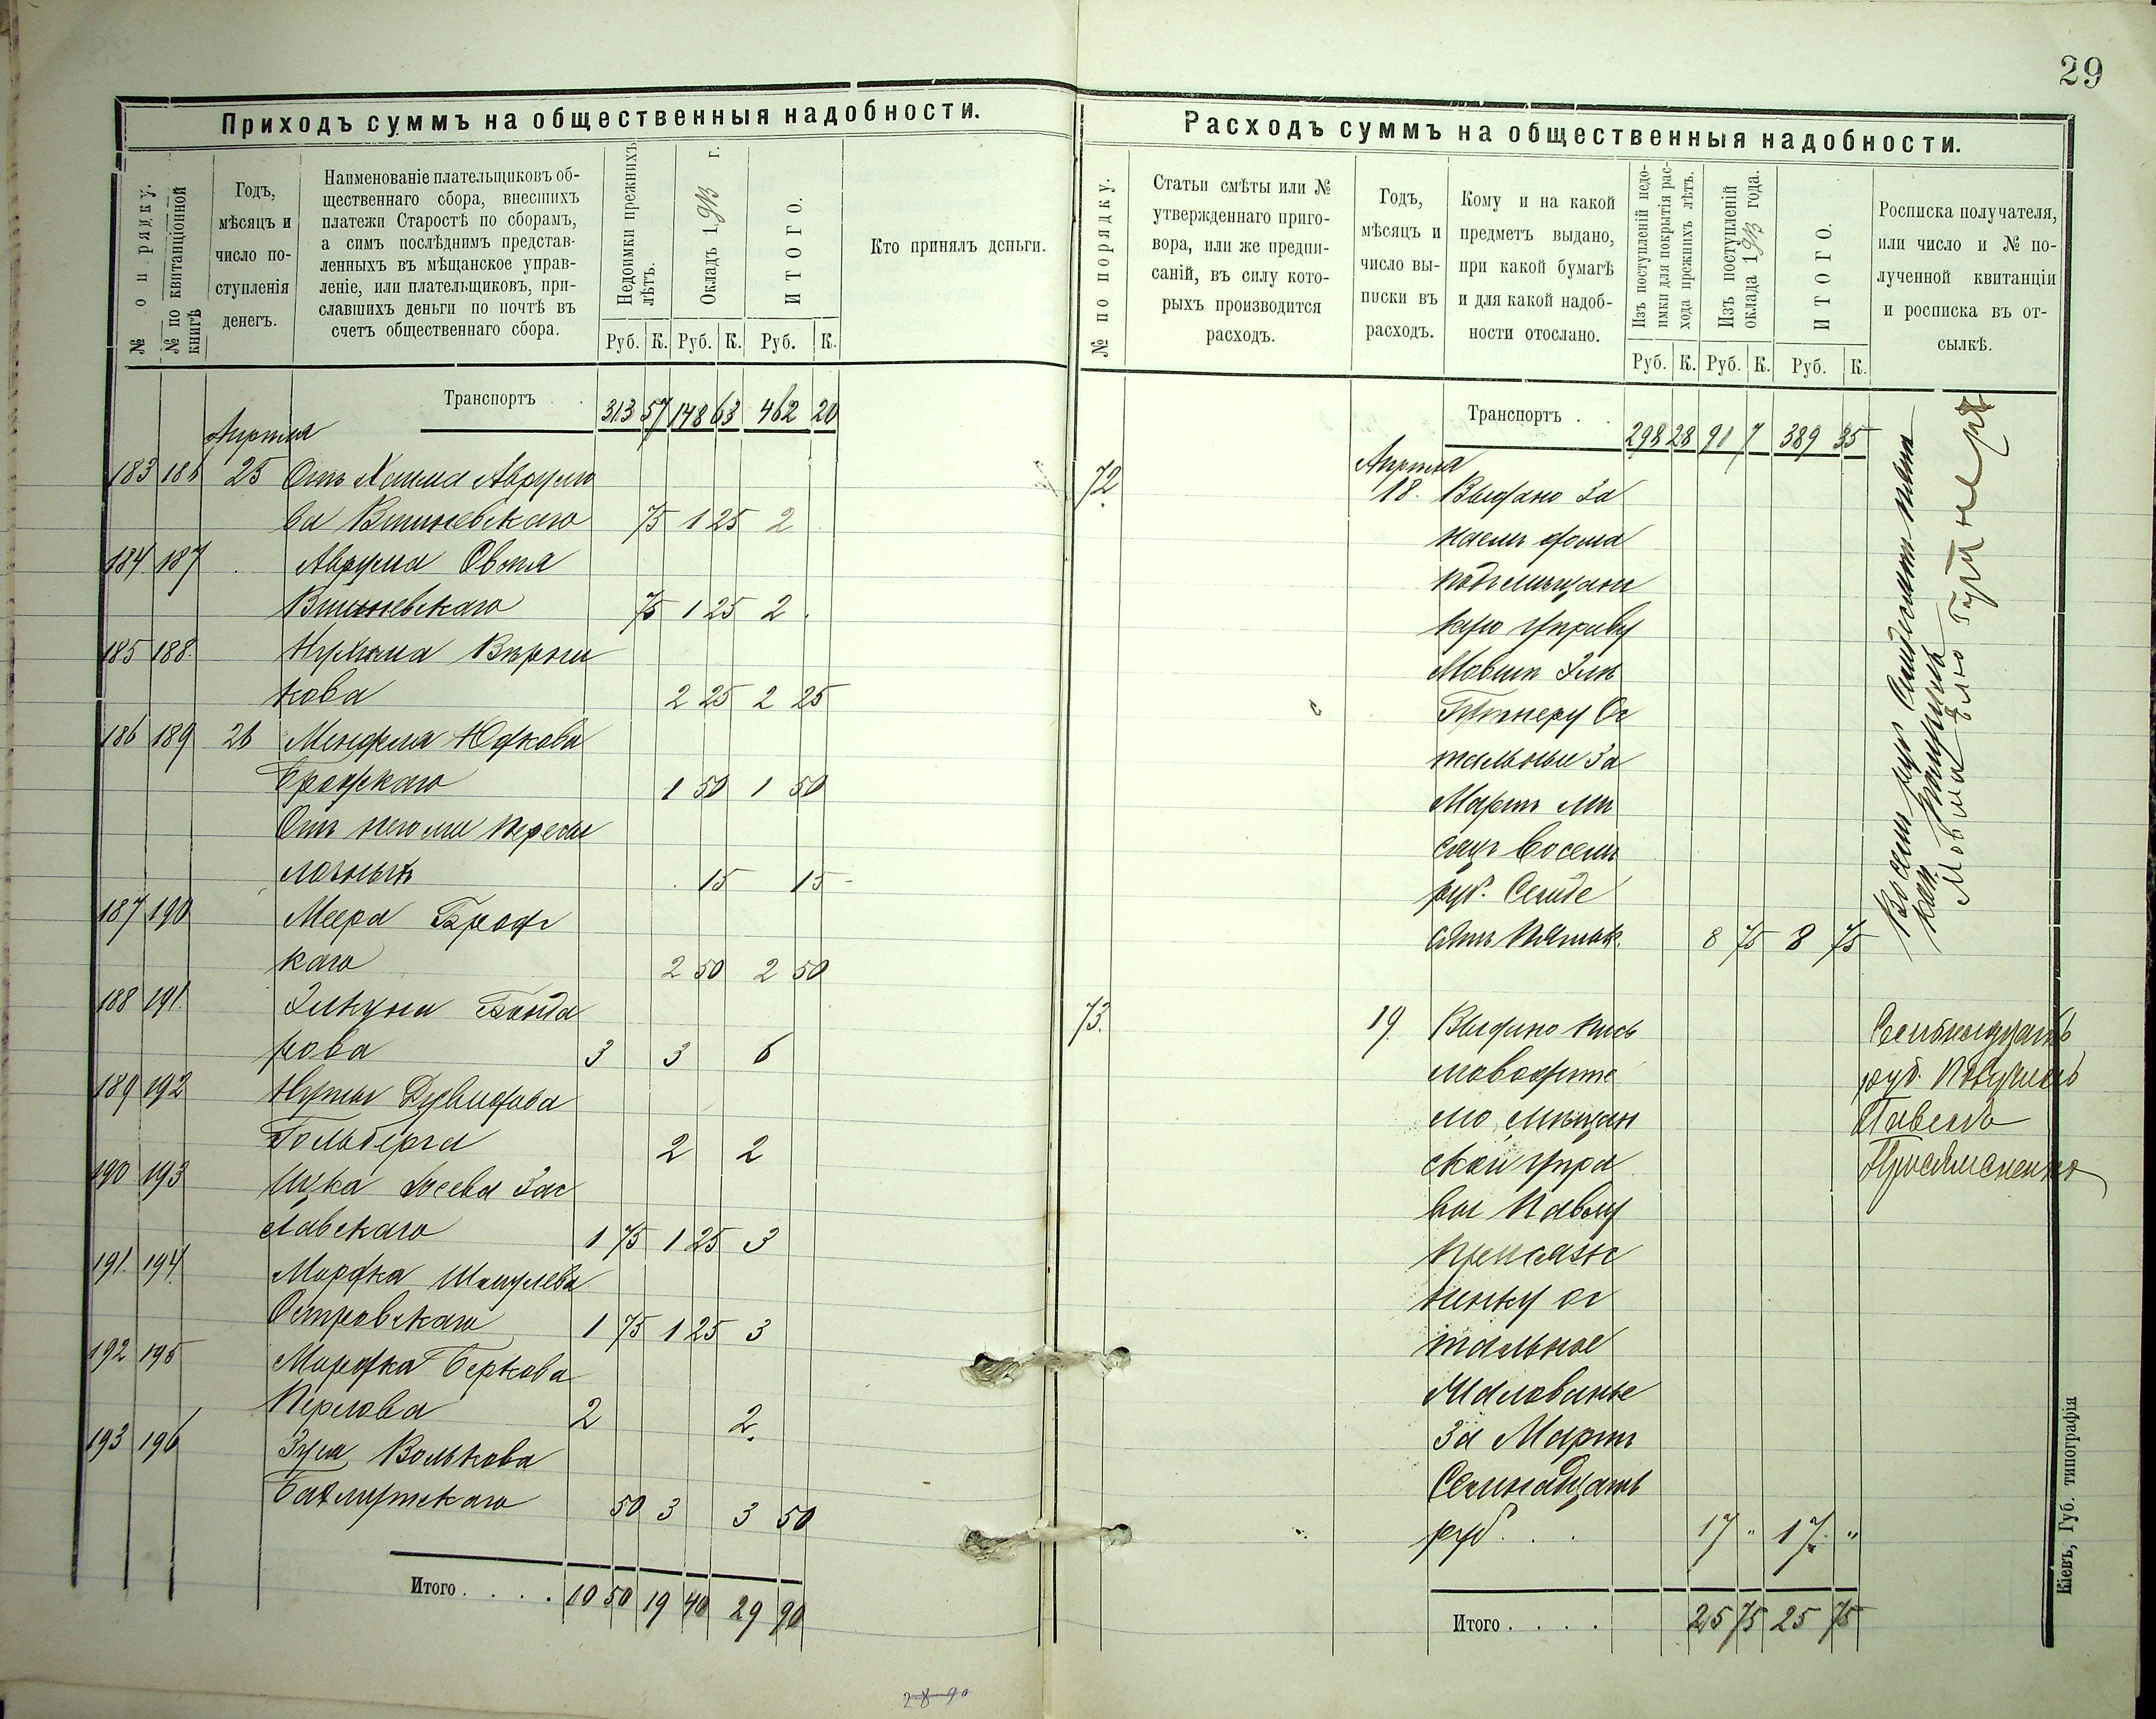 29
Приходъ суммъ на общественныя надобности.
№ по порядку.
№ по квитанціонной книгѣ
Годъ,
мѣсяцъ и
число по-
ступленія
денегъ.
Наименованіе плательщиковъ об-
щественнаго сбора, внесшихъ
платежи Старостѣ по сборамъ,
а симъ послѣднимъ представ-
ленныхъ въ мѣщанское управ-
леніе, или плательщиковъ, при-
славшихъ деньги по почтѣ въ
счетъ общественнаго сбора.
Недоимки прежнихъ
лѣтъ.
Окладъ 1913 г.
ИТОГО.
Руб. К. Руб. К. Руб. К.
Кто принялъ деньги.
Транспортъ . . 313 57 148 63 462 20
Апрѣля
183 186 25 Отъ Хаима Аврумо
ва Вишневскаго 75 1 25 2
184 187 Аврума Овсія
Вишневскаго 75 1 25 2
185 188 Нухима Вѣрни
кова 2 25 2 25
186 189 26 Менделя Юдкова
Бродскаго 1 50 1 50
Отъ него же пересы
лочныхъ 15 15
187 190 Меера Бродс
каго 2 50 2 50
188 191 Элькуна Бонда
рова 3 3 6
189 192 Нуты Дувидова
Гольберга 2 2
190 193 Ицка Іосева Зас
лавскаго 1 75 1 25 3
191 194 Мордка Шмулева
Островскаго 1 75 1 25 3
192 195 Мордка Беркова
Перлова 2 2
193 196 Волькова
50 3 3 50
Итого . . . . 10 50 19 40 29 90
28 90
Расходъ суммъ на общественныя надобности.
№ по порядку.
Статьи смѣты или №
утвержденнаго приго-
вора, или же предпи-
саній, въ силу кото-
рыхъ производится
расходъ.
Годъ,
мѣсяцъ и
число вы-
писки въ
расходъ.
Кому и на какой
предметъ выдано,
при какой бумагѣ
и для какой надоб-
ности отослано.
Изъ поступленій недо-
имки для покрытія рас-
хода прежнихъ лѣтъ.
Изъ поступленій
оклада 1913 года.
ИТОГО.
Руб. К. Руб. К. Руб. К.
Росписка получателя,
или число и № по-
лученной квитанціи
и росписка въ от-
сылкѣ.
Транспортъ . . 298 28 91 7 389 35
Апрѣля
72. 18. Выдано за
наемъ дома
подъ мѣщанс
кую управу
Мовше Эль
Гитнеру Ос
тальные за
Мартъ мѣ
сяцъ восемь
руб. Семде
сятъ пять к. 8 75 8 75
Восемь руб Семдесятъ пять
коп. получилъ
73. 19. Выдано пись
моводите
лю мѣщан
ской упра
вы Павлу
Присяж
нинку ос
тальное
жалованье
за Мартъ
Семнадцать
руб. . . 17 " 17. "
Семнадцать
руб. Получилъ
Павелъ
Итого . . . . 25 75 25 75
Кіевъ, Губ. типографія